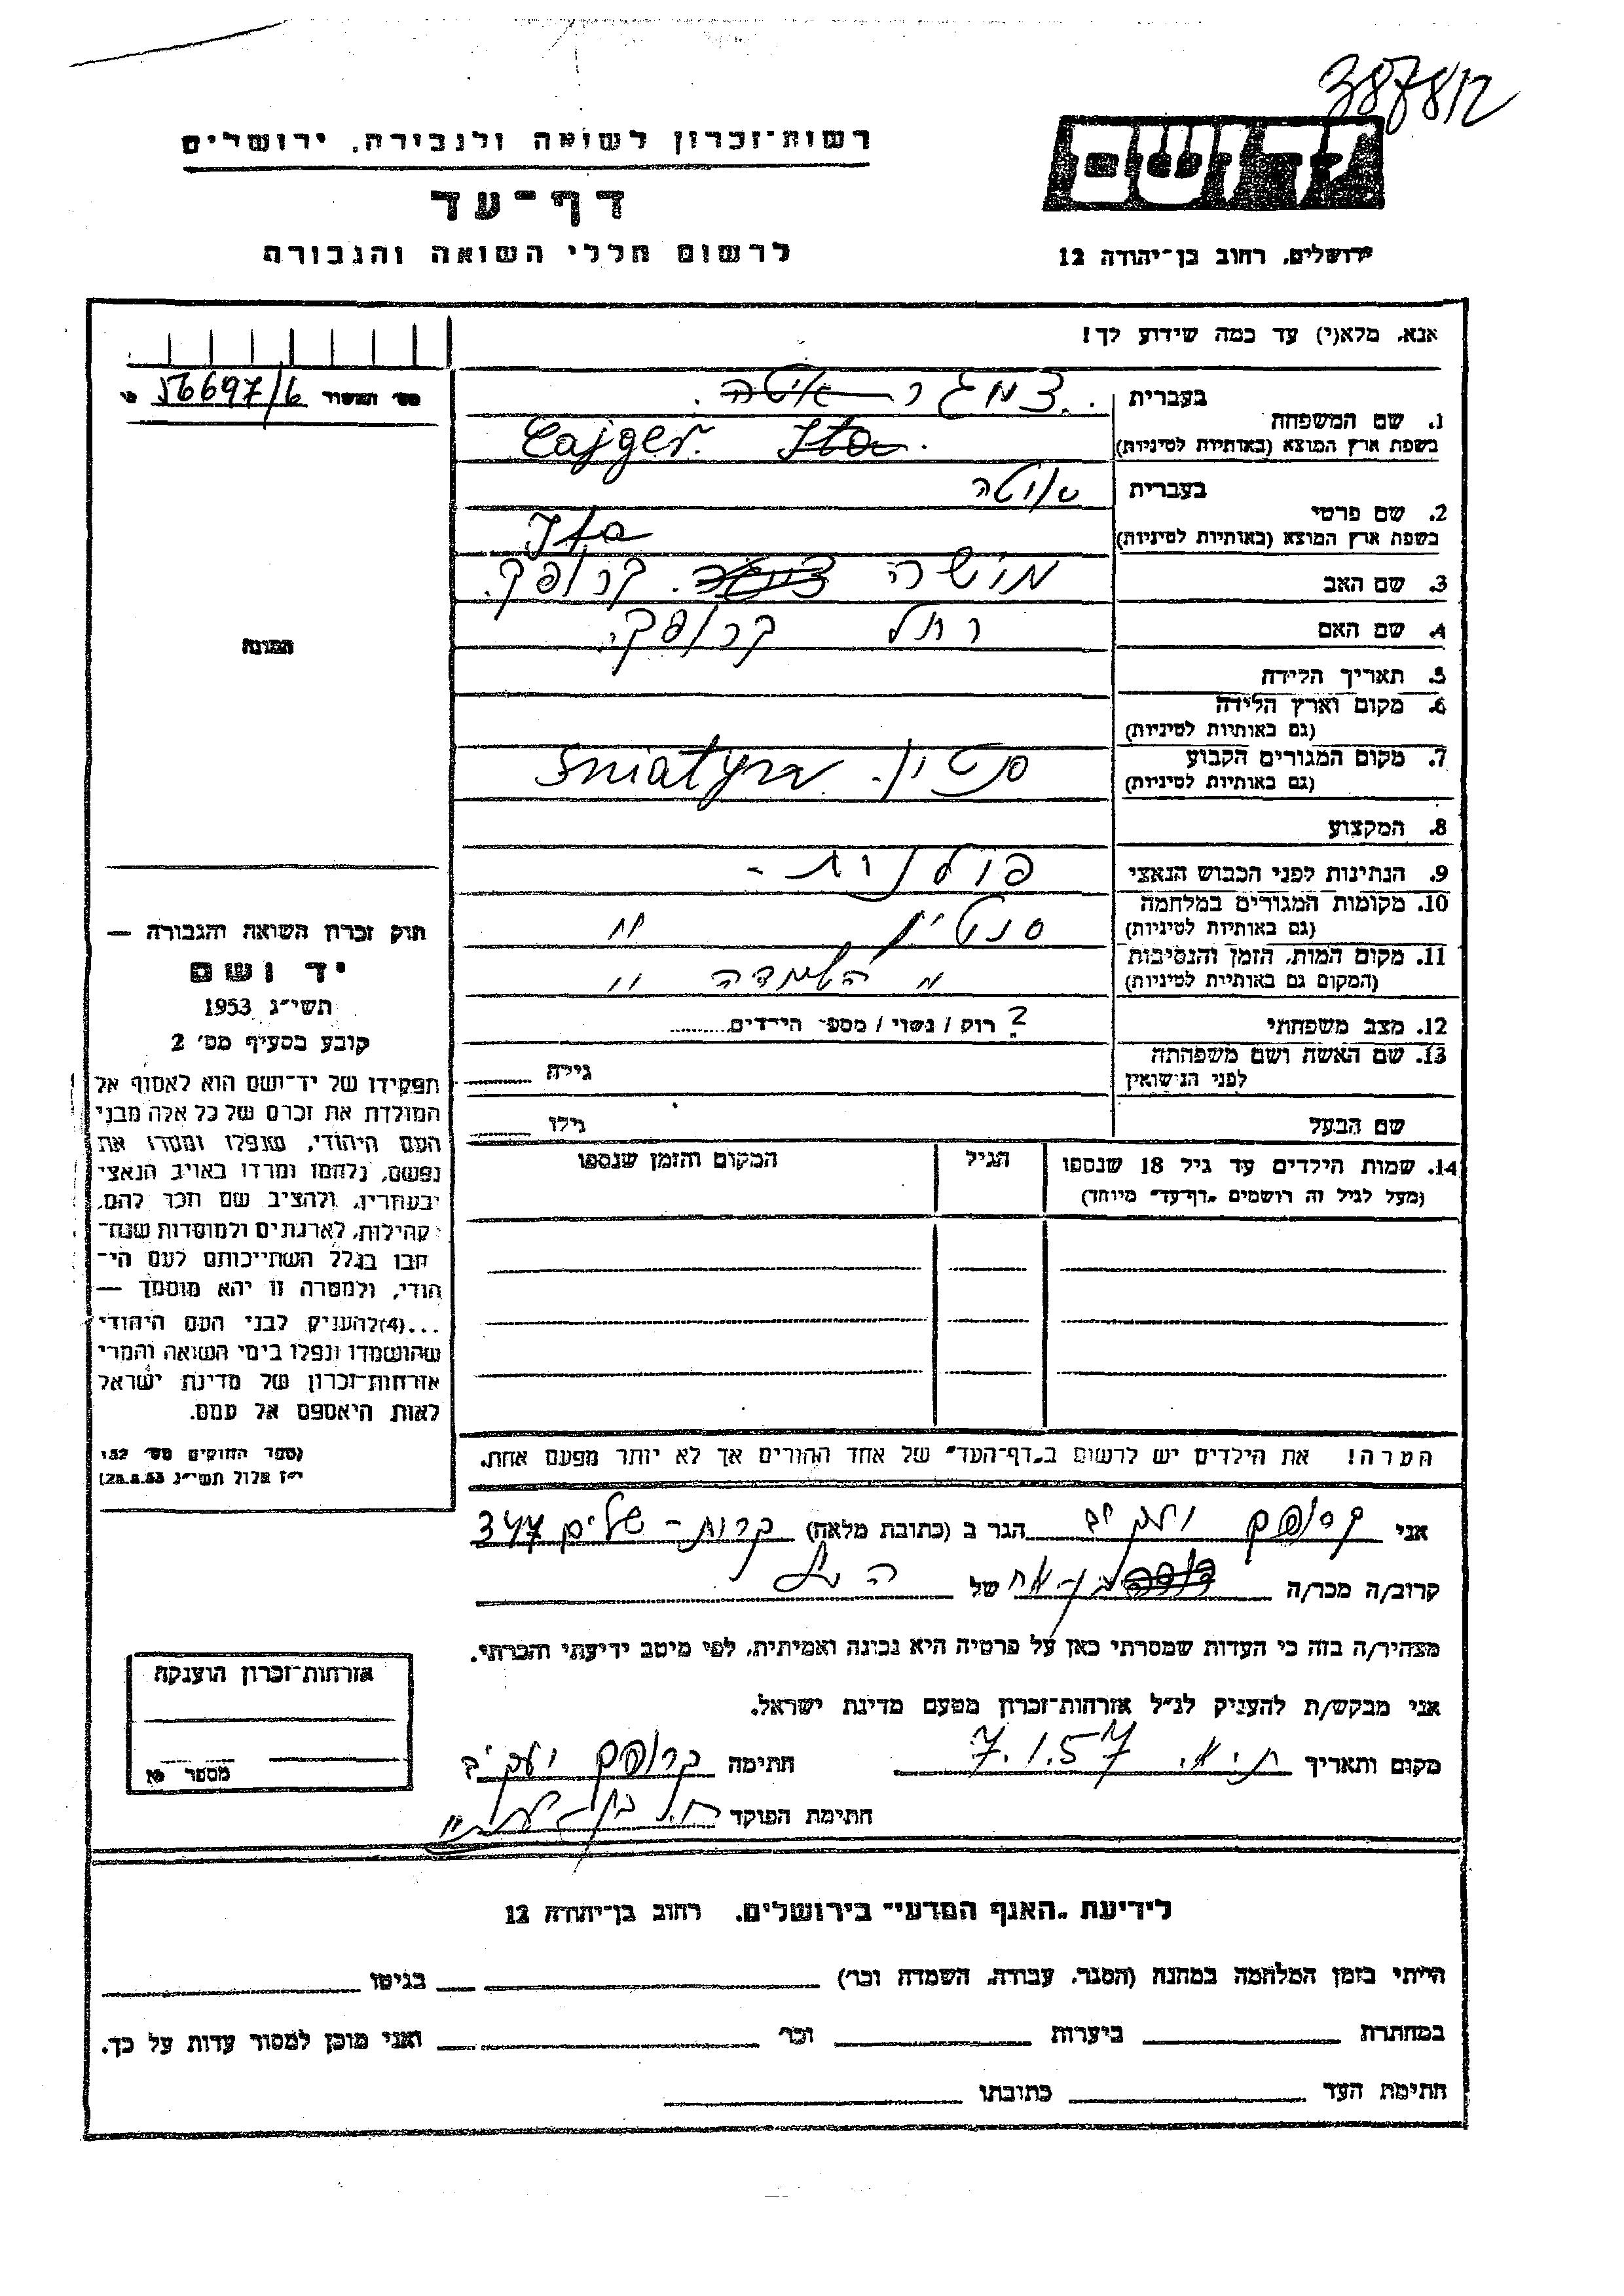 387812
רשות־זכרון לשואה ולגבורה, ירושלים
דף־עד
לרשום חללי השואה והגבורה
יד ושם
ירושלים, רחוב בן־יהודה 12
אנא, מלא(י) עד כמה שידוע לך!
מס׳ תמשור 56697/6
1. שם המשפחה
בעברית
בשפת ארץ המוצא (באותיות לטיניות)
Cajger. Ita
2. שם פרטי
בעברית איטה
בשפת ארץ המוצא (באותיות לטיניות)
Ita
3. שם האב מושה
4. שם האם רחל
5. תאריך הלידה
6. מקום וארץ הלידה
(גם באותיות לטיניות)
7. מקום המגורים הקבוע
(גם באותיות לטיניות)
Sniatyn
8. המקצוע
9. הנתינות לפני הכבוש הנאצי פולנית -
10. מקומות המגורים במלחמה
(גם באותיות לטיניות)
סנטין "
11. מקום המות, הזמן והנסיבות
(המקום גם באותיות לטיניות)
" השמדה "
12. מצב משפחתי
? רוק / נשוי / מספר הילדים
13. שם האשה ושם משפחתה
לפני הנישואין
גילה
שם הבעל
גילו
14. שמות הילדים עד גיל 18 שנספו
(מעל לגיל זה רושמים „דף־עד” מיוחד)
הגיל
המקום והזמן שנספו
הערה! את הילדים יש לרשום ב„דף־העד” של אחד ההורים אך לא יותר מפעם אחת.
תמונה
חוק זכרון השואה והגבורה —
יד ושם
תשי״ג 1953
קובע בסעיף מס׳ 2
תפקידו של יד־ושם הוא לאסוף אל
המולדת את זכרם של כל אלה מבני
העם היהודי, שנפלו ומסרו את
נפשם, נלחמו ומרדו באויב הנאצי
ובעוזריו, ולהציב שם וזכר להם,
לקהילות, לארגונים ולמוסדות שנח־
רבו בגלל השתייכותם לעם הי־
הודי, ולמטרה זו יהא מוסמך —
...(4) להעניק לבני העם היהודי
שהושמדו ונפלו בימי השואה והמרי
אזרחות־זכרון של מדינת ישראל
לאות היאספם אל עמם.
(ספר החוקים מס׳ 132
י״ז אלול תשי״ג 28.8.53)
אני הגר ב (כתובת מלאה) 347
קרוב/ה מכר/ה של
מצהיר/ה בזה כי העדות שמסרתי כאן על פרטיה היא נכונה ואמיתית, לפי מיטב ידיעתי והכרתי.
אני מבקש/ת להעניק לנ״ל אזרחות־זכרון מטעם מדינת ישראל.
מקום ותאריך ת.א. 7.1.57 חתימה
חתימת הפוקד
אזרחות־זכרון הוענקה
מספר
לידיעת „האגף המדעי” בירושלים, רחוב בן־יהודה 12
הייתי בזמן המלחמה במחנה (הסגר, עבודה, השמדה וכו׳) בגיטו
במחתרת ביערות וכו׳ ואני מוכן למסור עדות על כך.
חתימת העד כתובתו